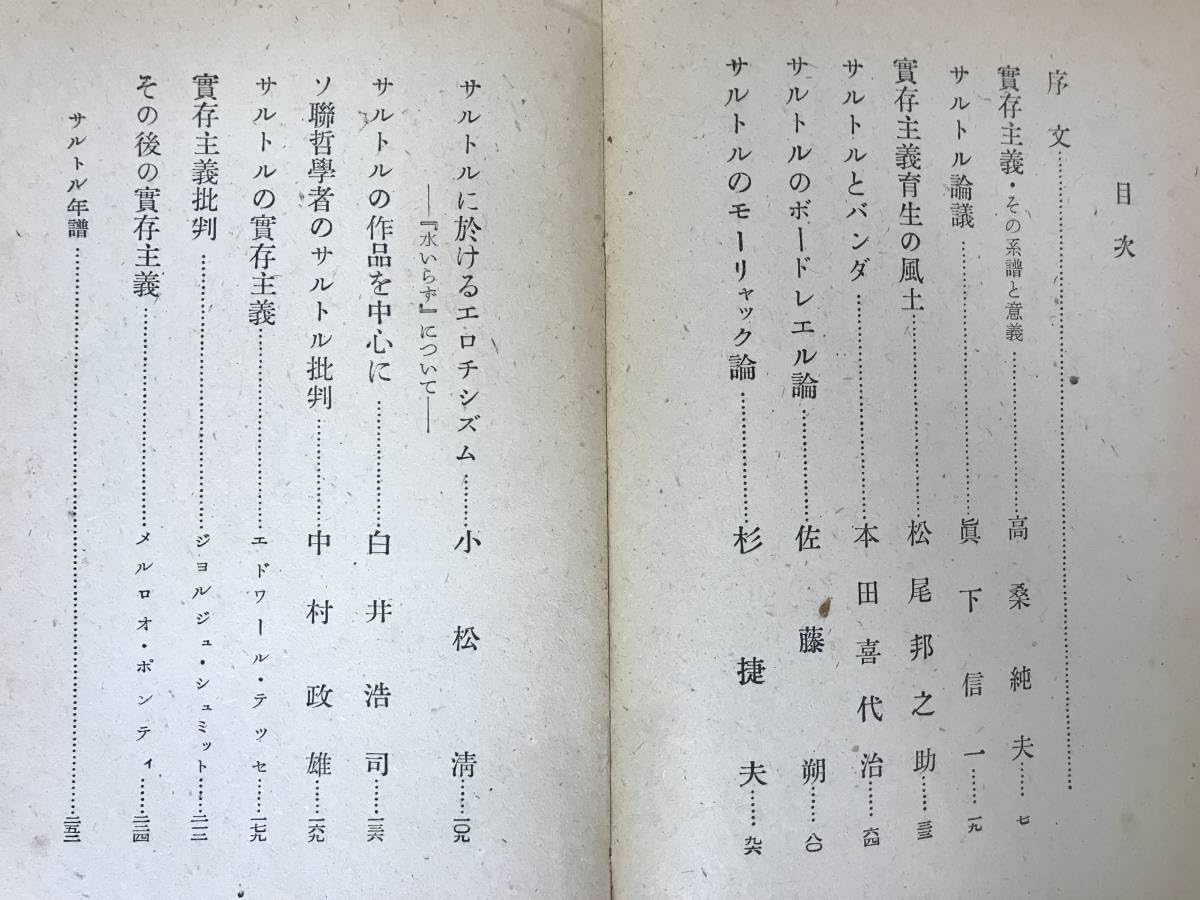 目次
序文……
實存主義・その系譜と意義……高桑純夫……七
サルトル論議……眞下信一……一九
實存主義育生の風土……松尾邦之助……三三
サルトルとバンダ……本田喜代治……六四
サルトルのボードレエル論……佐藤朔……八〇
サルトルのモーリャック論……杉捷夫……九六
サルトルに於けるエロチシズム……小松淸……一〇九
――『水いらず』について――
サルトルの作品を中心に……白井浩司……一三六
ソ聯哲學者のサルトル批判……中村政雄……一六九
サルトルの實存主義……エドワール・テツセ……一七九
實存主義批判……ジヨルジュ・シュミット……二一二
その後の實存主義……メルロオ・ポンティ……二三四
サルトル年譜……二五三